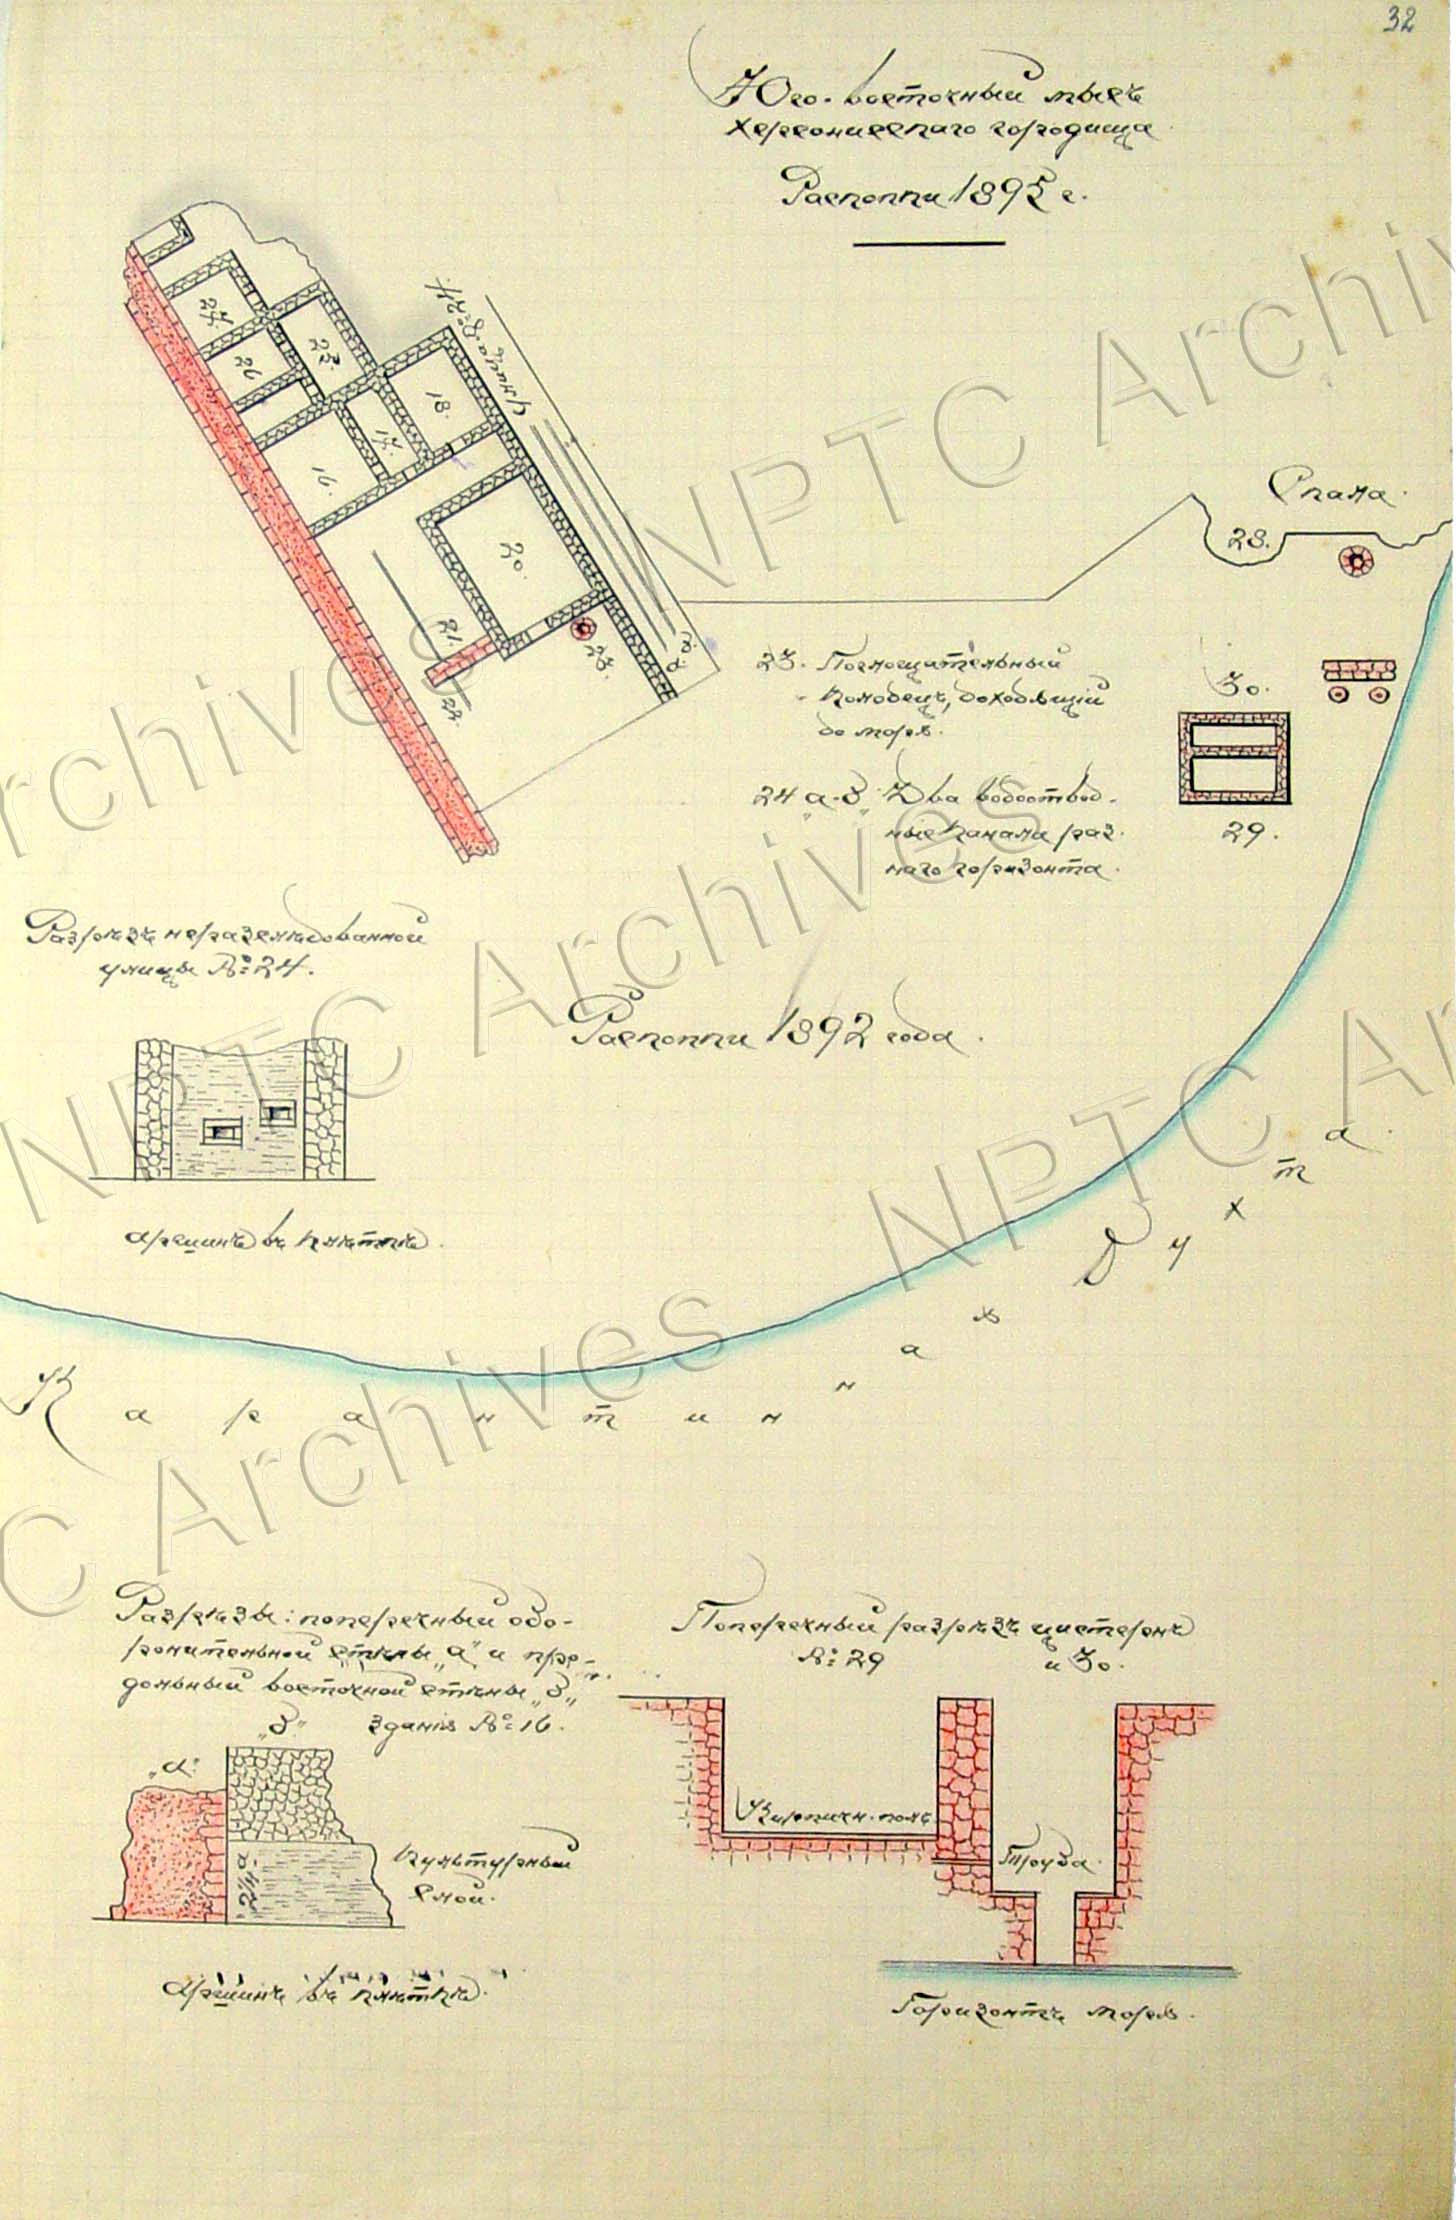 32
Юго-восточный мысъ
Херсонисскаго городища
Раскопки 1895 г.
Улица № 24
27.
26
25.
18.
17.
16.
20.
21.
22.
23.
а.
в.
Скала.
28.
30.
29.
23. Поглощательный
колодецъ, доходящій
до моря.
24 „а-в„ Два водоотвод-
ные канала раз-
наго горизонта.
Разрѣзъ неразслѣдованной
улицы № 24.
аршинъ въ клѣткѣ.
Раскопки 1892 года.
Карантинная Бухта.
Разрѣзы: поперечный обо-
ронительной стѣны „а” и про-
дольный восточной стѣны „в„
зданія № 16.
„в”
„а”
2 1/4 а.
культурный
слой.
Аршинъ въ клѣткѣ.
Поперечный разрѣзъ цистернъ
№ 29 и 30.
Кирпичн. полъ
Труба.
Горизонтъ моря.
NPTC Archives
NPTC Archives
NPTC Archives
NPTC Archives